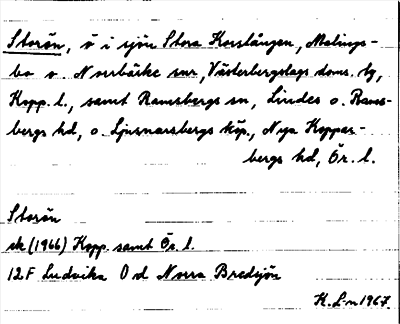 Storön, ö i sjön Stora Korslången, Malings-
bo o. Norrbärke snr, Västerbergslags doms. tg,
Kopp. l., samt Ramsbergs sn, Lindes o. Rams-
bergs hd, o. Ljusnarsbergs köp., Nya Koppar-
bergs hd, Ör. l.
Storön
sk (1966) Kopp. samt Ör. l.
12F Ludvika 0d Norra Bredsjön
K.L-n 1967.